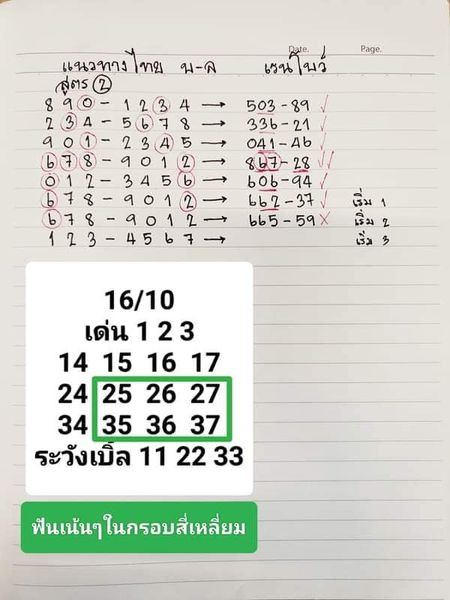 Date. Page.
แนวทางไทย บ-ล เรนโบว์
สูตร 2
890-1234 → 503-89 ✓
234-5678 → 336-21 ✓
901-2345 → 041-46 ✓
678-9012 → 867-28 ✓✓
012-3456 → 606-94 ✓
678-9012 → 662-37 ✓ เริ่ม 1
678-9012 → 665-59 × เริ่ม 2
123-4567 → เริ่ม 3
16/10
เด่น 1 2 3
14 15 16 17
24 25 26 27
34 35 36 37
ระวังเบิ้ล 11 22 33
ฟันเน้นๆในกรอบสี่เหลี่ยม